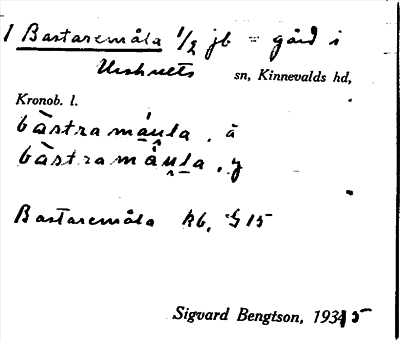 1 Bastaremåla 1/2 jb = gård i
Urshults sn, Kinnevalds hd,
Kronob. l.
bàstramáu̯la . ä
bàstramáu̯la . y
Bastaremåla kb, G 15
Sigvard Bengtson, 1935